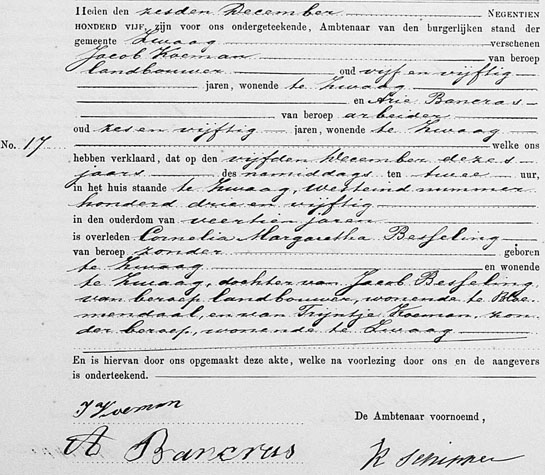 Heden den zesden December NEGENTIEN
HONDERD VIJF, zijn voor ons ondergeteekende, Ambtenaar van den burgerlijken stand der
gemeente Zwaag verschenen
Jacob Koeman van beroep
landbouwer oud vijf en vijftig
jaren, wonende te Zwaag
en Arie Bancras
van beroep arbeider
oud zes en vijftig jaren, wonende te Zwaag
No. 17 welke ons
hebben verklaard, dat op den vijfden December dezes
jaars des namiddags ten twee uur,
in het huis staande te Zwaag, Westeind nummer
honderd drie en vijftig
in den ouderdom van veertien jaren
is overleden Cornelia Margaretha Besseling
van beroep zonder geboren
te Zwaag en wonende
te Zwaag, dochter van Jacob Besseling,
van beroep landbouwer, wonende te Bloe-
mendaal, en van Trijntje Koeman, zon-
der beroep, wonende te Zwaag
En is hiervan door ons opgemaakt deze akte, welke na voorlezing door ons en de aangevers
is onderteekend.
J Koeman
De Ambtenaar voornoemd,
A Bancras
K Schipper